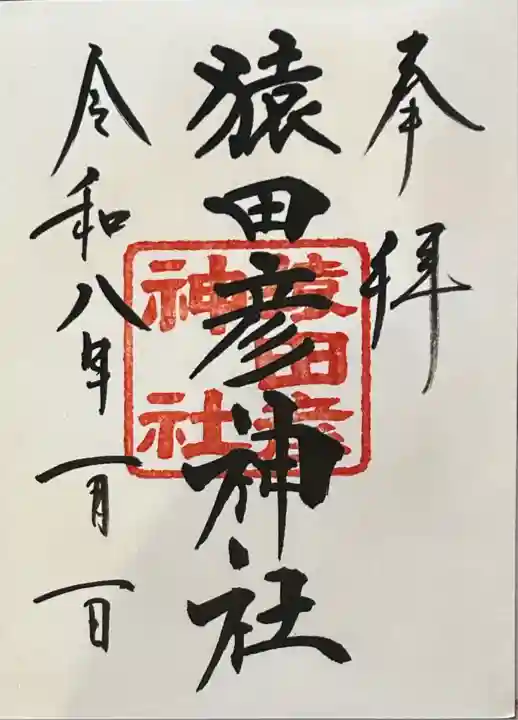 奉拝
猿田彦神社
猿田彦
神社
令和八年一月一日